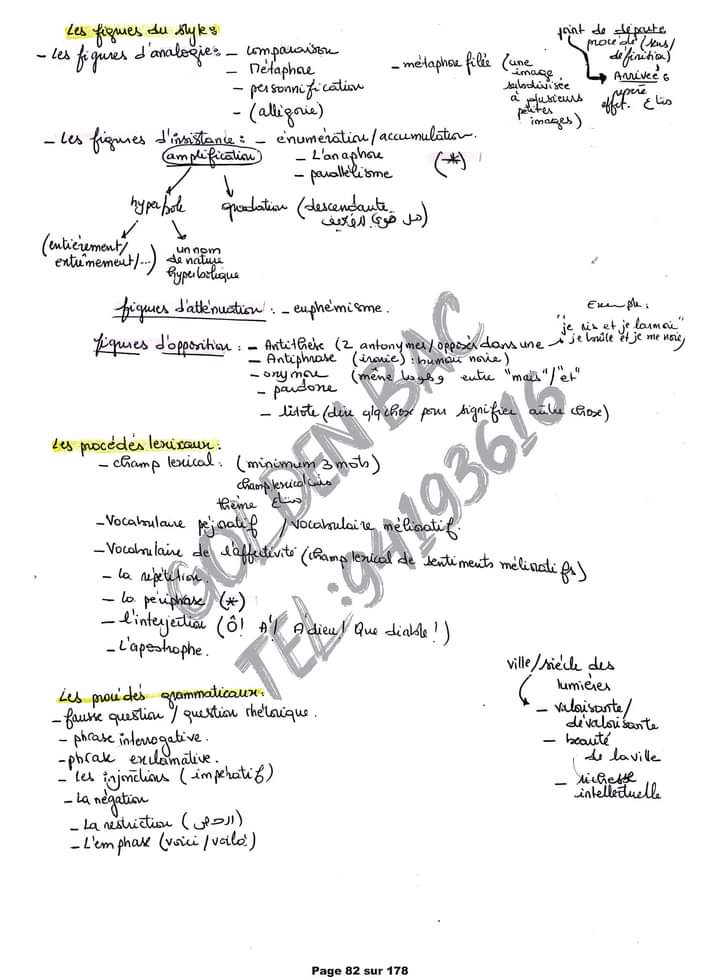 Les figures du style
- Les figures d'analogie: - Comparaison
- Métaphore
- personnification
- (allégorie)
- métaphore filée (une image subdivisée à plusieurs petites images)
point de départ:
procédé (sens/
définition)
Arrivée:
effet.
- Les figures d'insistance: - énumération/accumulation.
(amplification) - L'anaphore
- parallélisme
(*)
hyperbole gradation (descendante
(entièrement/
extrêmement/...)
un nom
de nature
hyperbolique
figures d'atténuation: - euphémisme.
Exemple:
"je ris et je larmoie"
je brûle et je me noie,
figures d'opposition: - Antithèse (2 antonymes/opposés dans une
- Antiphrase (ironie): humour noire)
- oxymore (même entre "mais"/"et"
- paradoxe
- litote (dire qlq chose pour signifier autre chose)
Les procédés lexicaux:
- champ lexical: (minimum 3 mots)
champ lexical
thème متاع
- Vocabulaire péjoratif / vocabulaire mélioratif.
- Vocabulaire de l'affectivité (champ lexical de sentiments mélioratifs)
- la répétition.
- la périphrase (*)
- l'interjection (Ô! A! / Adieu! Que diable!)
- L'apostrophe.
ville/siècle des
lumières
- valorisante/
dévalorisante
- beauté
de la ville
- richesse
intellectuelle
Les procédés grammaticaux:
- fausse question / question rhétorique.
- phrase interrogative.
- phrase exclamative.
- Les injonctions (impératif)
- La négation
- La restriction (الحصر)
- L'emphase (voici/voilà)
GOLDEN BAC
TEL:94193616
Page 82 sur 178